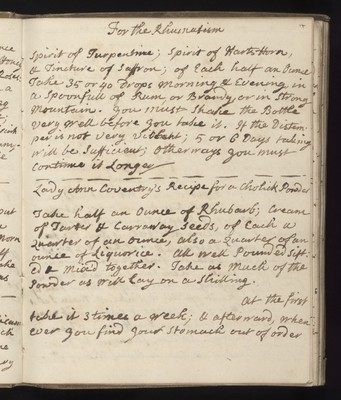 For the Rhusnatism
Spirit of Turpentine; Spirit of Harts Horn,
& Tincture of Saffron; of Each half an Ounce
Take 35 or 40 Drops Morning & Evening in
a Spoonfull of Rum or Brandy, or in Strong
Mountain. You must Shake the Bottle
very well before you take it. If the Distem-
per is not very Violent; 5 or 6 Days taking
will be Sufficient; Otherways you must
Continue it Longer
Lady Ann Coventry's Recipe for a Cholick Powder
Take half an Ounce of Rhubarb; Cream
of Tarter & Carraway Seeds, of Each a
Quarter of an ounce, also a Quarter of an
ounce of Liquorice. All well Pounded Sift-
ed & Mixd together. Take as Much of the
Powder as will Lay on a Shilling.
at the first
take it 3 times a week; & afterward, when
ever you find your Stomach out of order